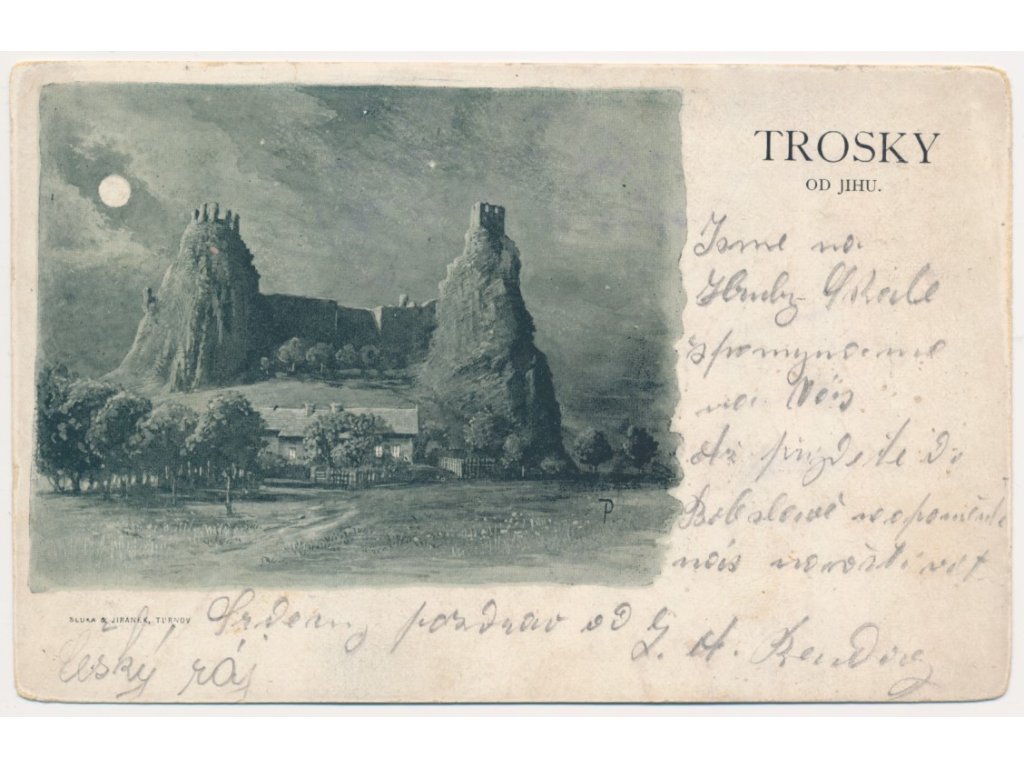 TROSKY
OD JIHU.
Jsme na
Hrubý Skale
zpomynáme
na Vás
Až přijdete do
Boleslavě
nás navštívit
SLUKA & JIRÁNEK, TURNOV
Srdečný pozdrav od
Český ráj